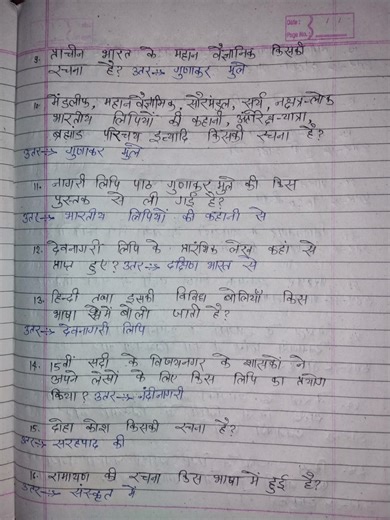 Date: / /
Page No.
9. प्राचीन भारत के महान वैज्ञानिक किसकी
रचना है? उतर→ गुणाकर मुले
10. मेंडलीफ, महान वैज्ञानिक, सौरमंडल, सूर्य, नक्षत्र-लोक
भारतीय लिपियों की कहानी, अंतरिक्ष-यात्रा,
ब्रह्मांड परिचय इत्यादि किसकी रचना है?
उतर→ गुणाकर मुले
11. नागरी लिपि पाठ गुणाकर मुले की किस
पुस्तक से ली गई है?
उतर→ भारतीय लिपियों की कहानी से
12. देवनागरी लिपि के प्रारंभिक लेख कहां से
प्राप्त हुए? उतर→ दक्षिण भारत से
13. हिन्दी तथा इसकी विविध बोलियाँ किस
भाषा में बोली जाती है?
उतर→ देवनागरी लिपि
14. 15वीं सदी के विजयनगर के शासकों ने
अपने लेखों के लिए किस लिपि का प्रयोग
किया? उतर→ नंदीनागरी
15. दोहा कोश किसकी रचना है?
उतर→ सरहपाद की
16. रामायण की रचना किस भाषा में हुई है?
उतर→ संस्कृत में